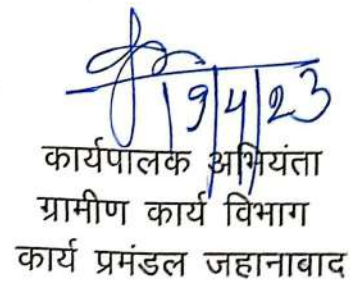 19/4/23
कार्यपालक अभियंता
ग्रामीण कार्य विभाग
कार्य प्रमंडल जहानाबाद